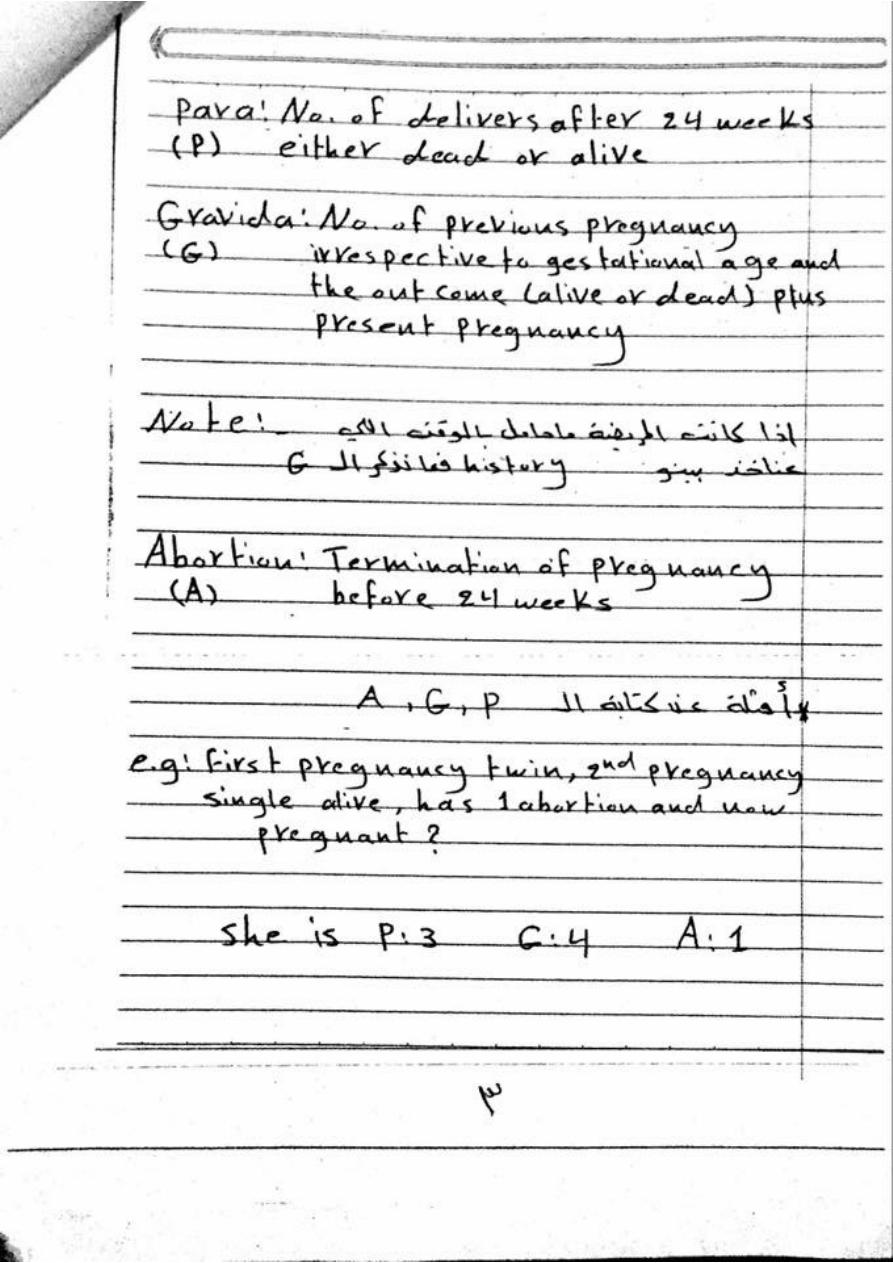 Para: No. of delivers after 24 weeks
(P) either dead or alive
Gravida: No. of previous pregnancy
(G) irrespective to gestational age and
the out come (alive or dead) plus
present pregnancy
Note:- اذا كانت المريضة ماحامل بالوقت الي
عناخذ بينو history فما نذكر الـ G
Abortion: Termination of pregnancy
(A) before 24 weeks
*أمثلة عن كتابة الـ A , G , P
e.g: First pregnancy twin, 2nd pregnancy
single alive, has 1 abortion and now
pregnant ?
she is P:3 G:4 A:1
٣